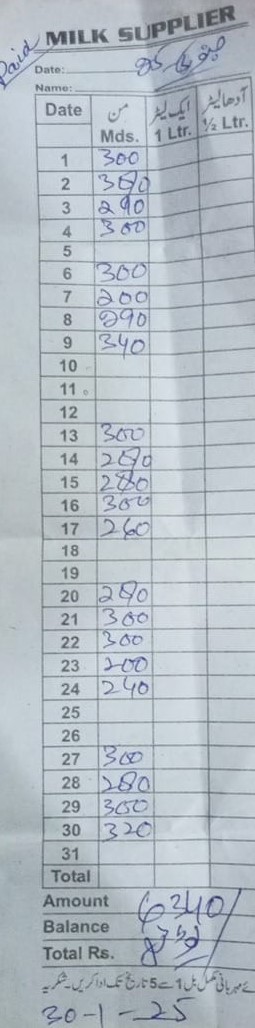 Paid
MILK SUPPLIER
Date:
Name:
Date من ایک لیٹر آدھا لیٹر
Mds. 1 Ltr. ½ Ltr.
1 300
2
3 290
4 300
5
6 300
7 200
8 290
9 340
10
11
12
13 300
14
15 280
16 300
17 260
18
19
20
21 300
22 300
23 200
24 240
25
26
27 300
28 280
29 300
30 320
31
Total
Amount 6340
Balance
Total Rs.
مہربانی مکمل بل 1 سے 5 تاریخ تک ادا کریں۔ شکریہ
30-1-25